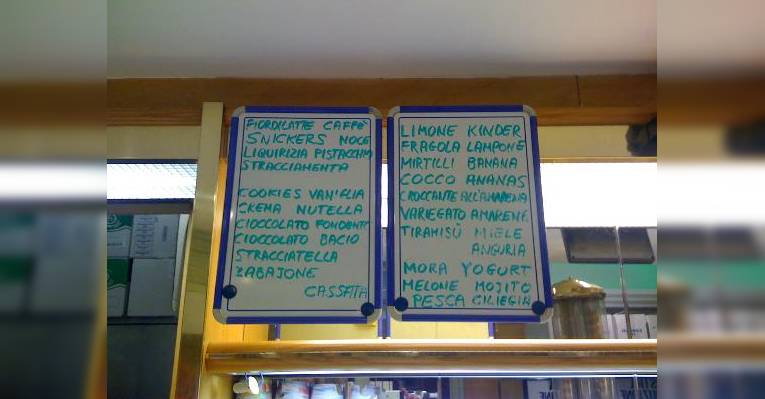 FIORDILATTE CAFFE'
SNICKERS NOCE
LIQUIRIZIA PISTACCHIO
STRACCIAMENTA
COOKIES VANIGLIA
CREMA NUTELLA
CIOCCOLATO FONDENTE
CIOCCOLATO BACIO
STRACCIATELLA
ZABAJONE
CASSATA
LIMONE KINDER
FRAGOLA LAMPONE
MIRTILLI BANANA
COCCO ANANAS
CROCCANTE ALL'AMARENA
VARIEGATO AMARENE
TIRAMISÙ MIELE
ANGURIA
MORA YOGURT
MELONE MOJITO
PESCA CILIEGIA